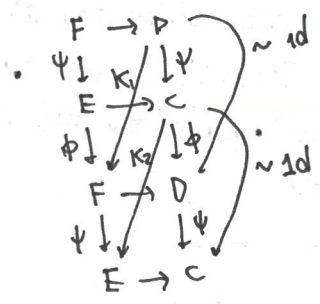 F → D
ψ ↓ K₁ ↓ ψ ~ 1d
E → C
ϕ ↓ K₂ ↓ ϕ ~ 1d
F → D
ψ ↓ ↓ ψ
E → C